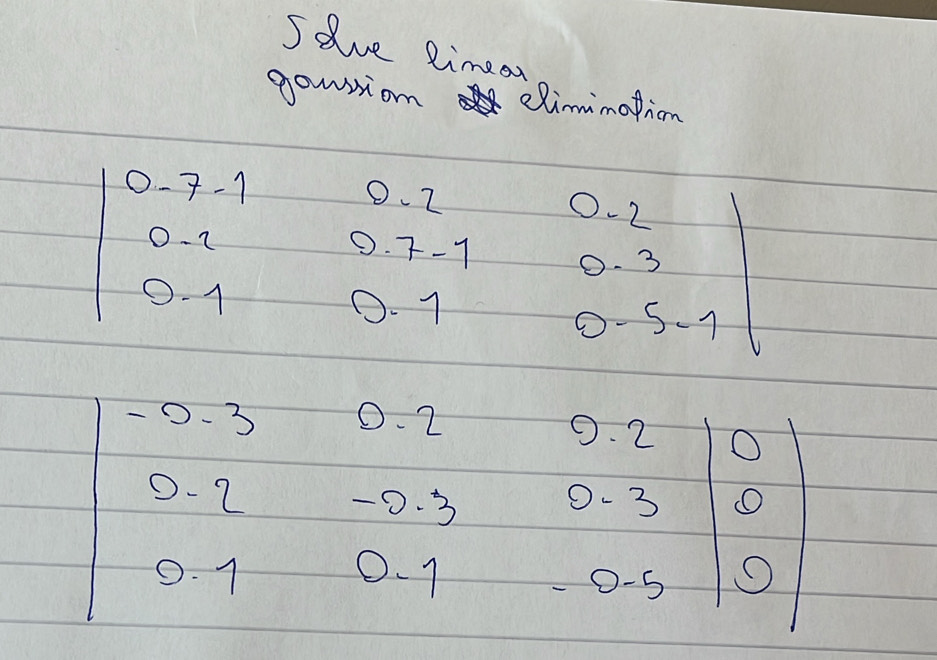 Solve linear
gaussian elimination
0.7-1 0.2 0.2
0.2 0.7-1 0.3
0.1 0.1 0.5-1
-0.3 0.2 0.2 | 0
0.2 -0.3 0.3 | 0
0.1 0.1 -0.5 | 0